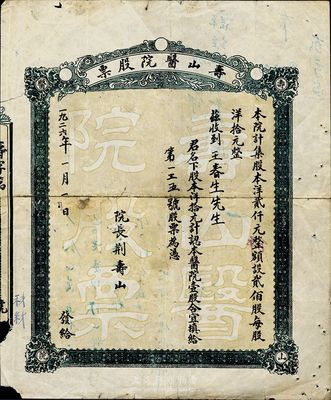 壽山醫院股票
本院計集股本洋貳仟元整額設貳佰股每股
洋拾元整
茲收到王春生先生
君名下股本洋拾元計認本醫院壹股合宜填給
第一一五號股票為憑
院長荆壽山
一九二六年一月一日
發給
壽山醫
院股票
壽
山
院